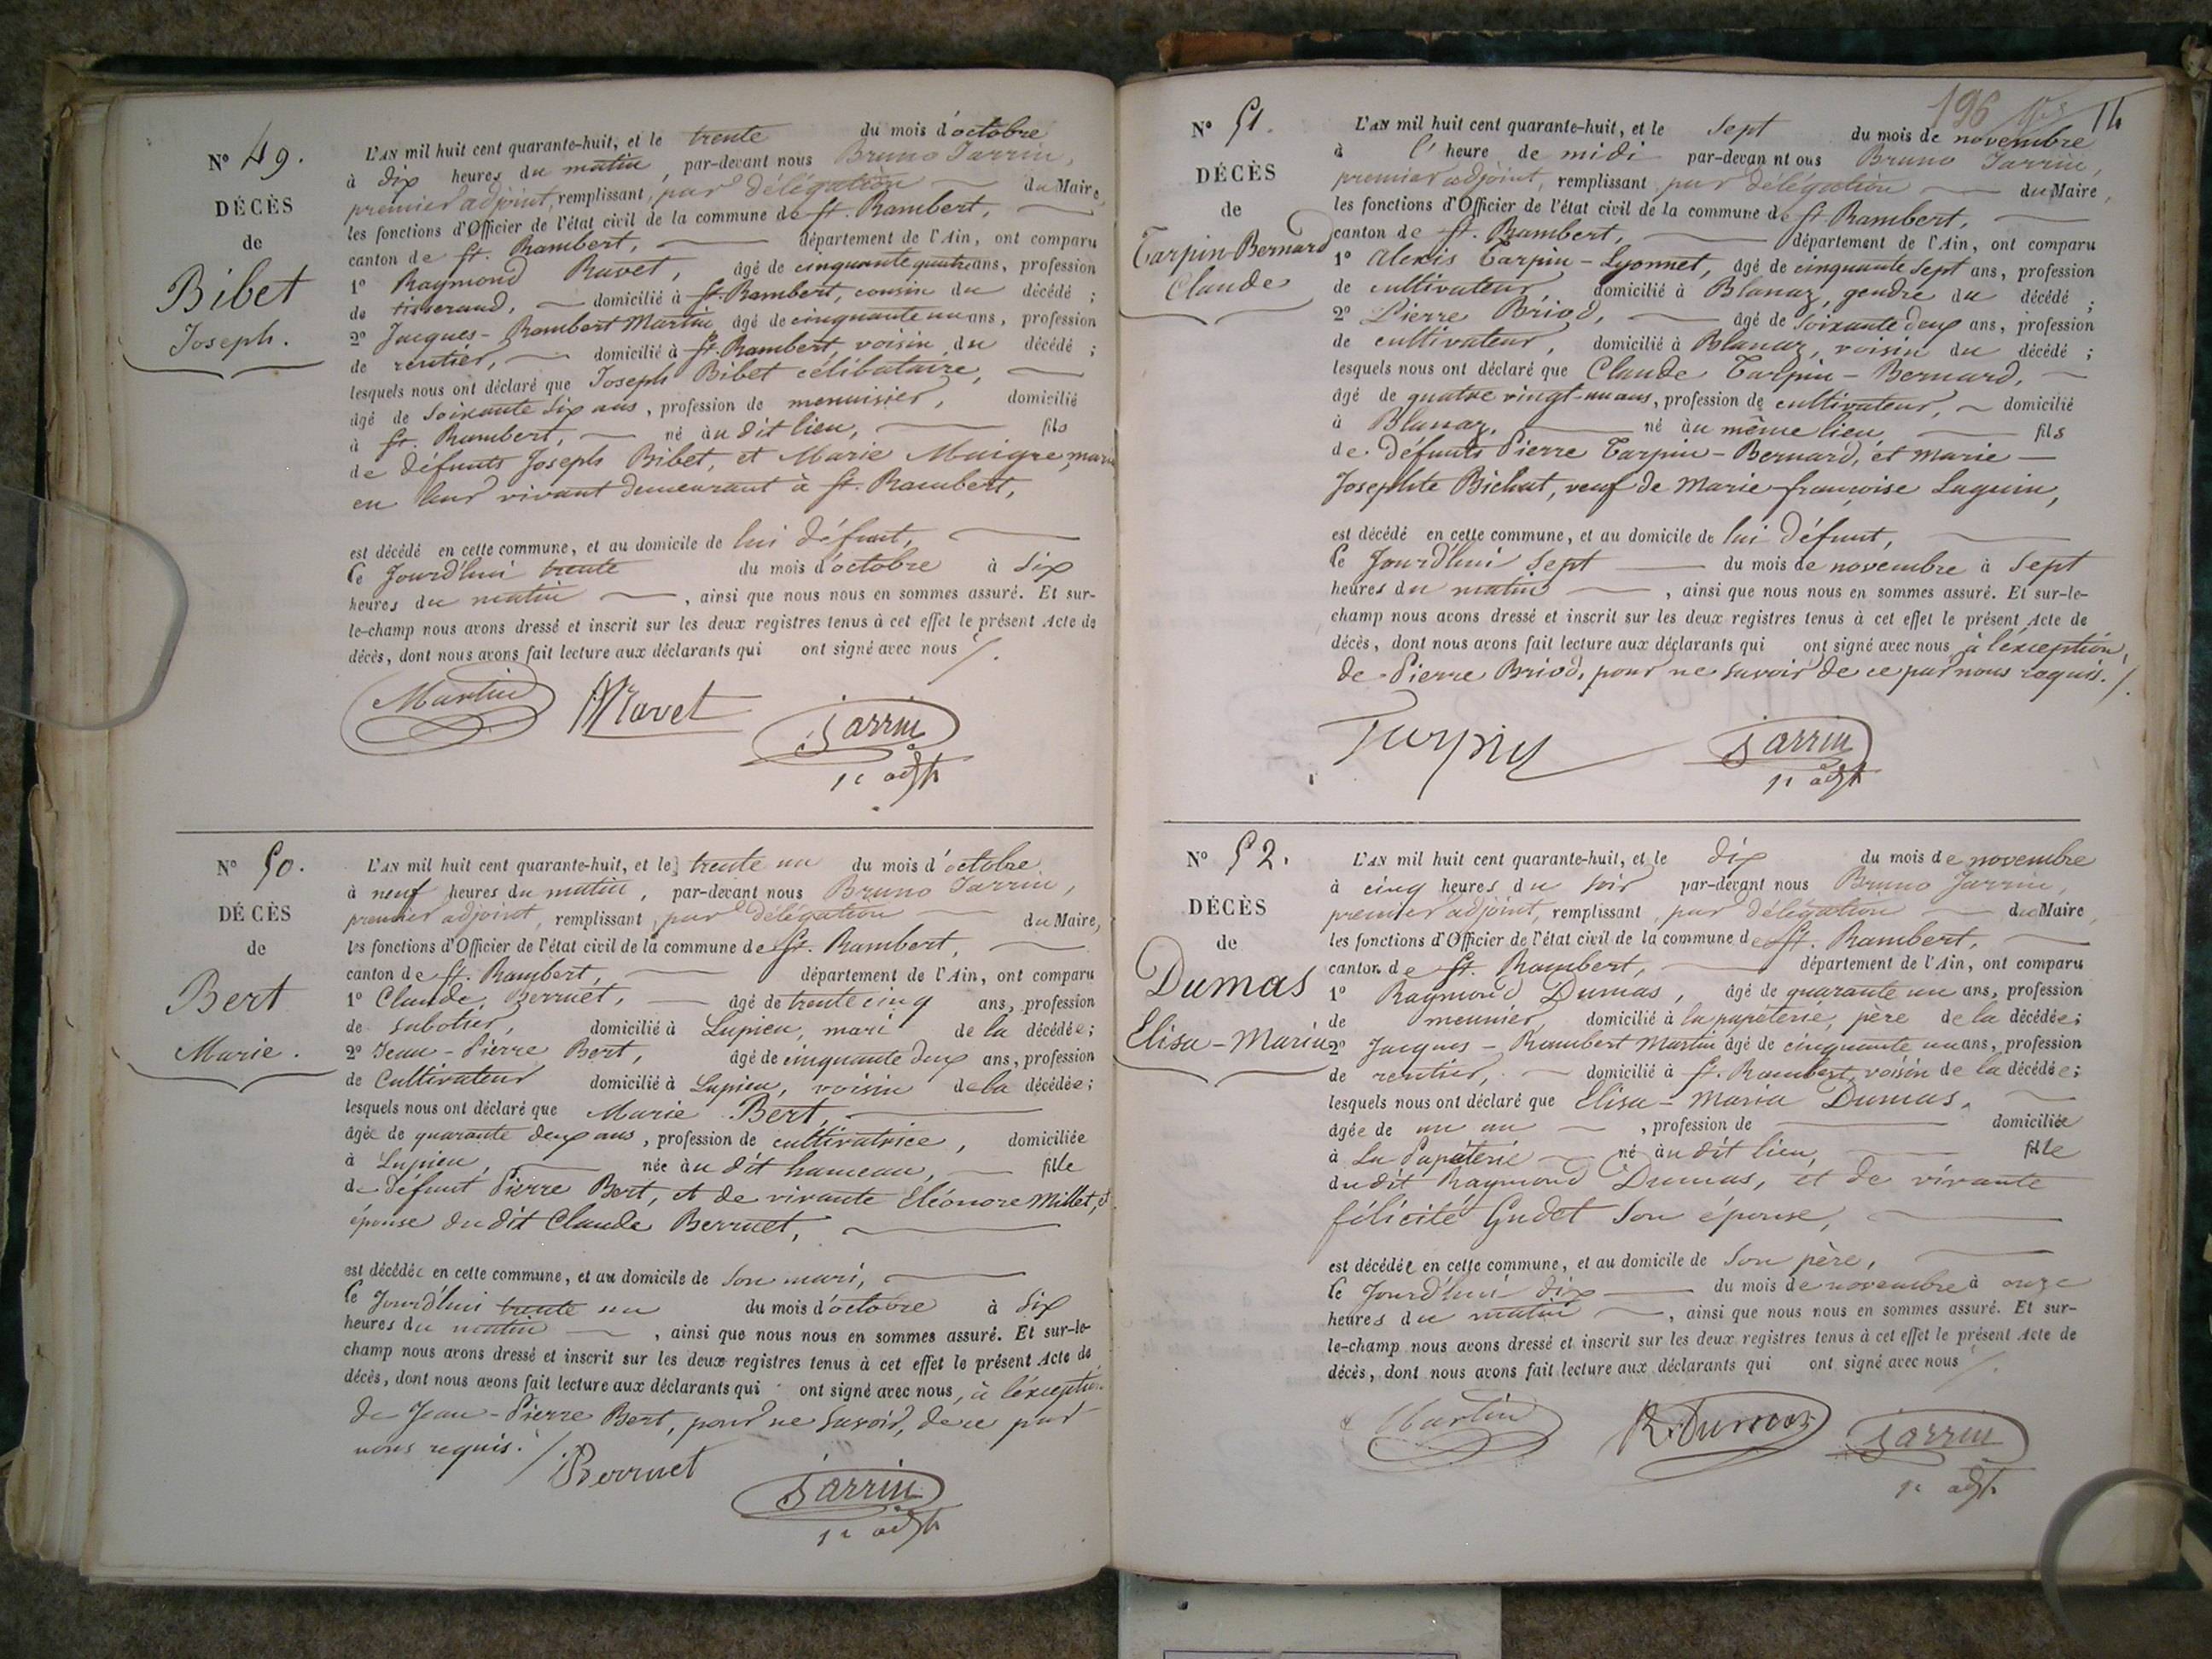 Nº 49.
DÉCÈS
de
Bibet
Joseph.
L'AN mil huit cent quarante-huit, et le trente du mois d'octobre
à dix heures du matin, par-devant nous Bruno Jarrin,
premier adjoint, remplissant, par délégation du Maire,
les fonctions d'Officier de l'état civil de la commune de St. Rambert,
canton de St. Rambert, département de l'Ain, ont comparu
1º Raymond Ravet, âgé de cinquante quatre ans, profession
de tisserand, domicilié à St. Rambert, cousin du décédé ;
2º Jacques-Rambert Martin, âgé de cinquante un ans, profession
de rentier, domicilié à St. Rambert, voisin du décédé ;
lesquels nous ont déclaré que Joseph Bibet célibataire,
âgé de soixante six ans, profession de menuisier, domicilié
à St. Rambert, né au dit lieu, fils
de défunts Joseph Bibet, et Marie Maigre,
en leur vivant demeurant à St. Rambert,
est décédé en cette commune, et au domicile de lui défunt,
Ce Jourd'hui trente du mois d'octobre à six
heures du matin, ainsi que nous nous en sommes assuré. Et sur-
le-champ nous avons dressé et inscrit sur les deux registres tenus à cet effet le présent Acte de
décès, dont nous avons fait lecture aux déclarants qui ont signé avec nous /.
Martin Ravet Jarrin
1er adjt
Nº 50.
DÉCÈS
de
Bert
Marie.
L'AN mil huit cent quarante-huit, et le trente un du mois d'octobre
à neuf heures du matin, par-devant nous Bruno Jarrin,
premier adjoint, remplissant, par délégation du Maire,
les fonctions d'Officier de l'état civil de la commune de St. Rambert,
canton de St. Rambert, département de l'Ain, ont comparu
1º Claude Berruet, âgé de trente cinq ans, profession
de sabotier, domicilié à Lupieu, mari de la décédée ;
2º Jean-Pierre Bert, âgé de cinquante deux ans, profession
de Cultivateur domicilié à Lupieu, voisin de la décédée ;
lesquels nous ont déclaré que Marie Bert,
âgée de quarante deux ans, profession de cultivatrice, domiciliée
à Lupieu, née au dit hameau, fille
de défunt Pierre Bert, et de vivante Eléonore Millet, et
épouse du dit Claude Berruet,
est décédée en cette commune, et au domicile de son mari,
Ce Jourd'hui trente un du mois d'octobre à six
heures du matin, ainsi que nous nous en sommes assuré. Et sur-le-
champ nous avons dressé et inscrit sur les deux registres tenus à cet effet le présent Acte de
décès, dont nous avons fait lecture aux déclarants qui ont signé avec nous, à l'exception
de Jean-Pierre Bert, pour ne savoir, de ce par
nous requis. /
Berruet Jarrin
1er adjt
196
Nº 51.
DÉCÈS
de
Tarpin-Bernard
Claude
L'AN mil huit cent quarante-huit, et le sept du mois de novembre
à l'heure de midi par-devan nt ous Bruno Jarrin,
premier adjoint, remplissant par délégation du Maire,
les fonctions d'Officier de l'état civil de la commune de St Rambert,
canton de St. Rambert, département de l'Ain, ont comparu
1º Alexis Tarpin-Lyonnet, âgé de cinquante sept ans, profession
de cultivateur, domicilié à Blanaz, gendre du décédé ;
2º Pierre Briod, âgé de soixante deux ans, profession
de cultivateur, domicilié à Blanaz, voisin du décédé ;
lesquels nous ont déclaré que Claude Tarpin-Bernard,
âgé de quatre vingt-un ans, profession de cultivateur, domicilié
à Blanaz, né au même lieu, fils
de défunts Pierre Tarpin-Bernard, et Marie
Josephte Bichat, veuf de Marie françoise Laguin,
est décédé en cette commune, et au domicile de lui défunt,
Ce Jourd'hui sept du mois de novembre à sept
heures du matin, ainsi que nous nous en sommes assuré. Et sur-le-
champ nous avons dressé et inscrit sur les deux registres tenus à cet effet le présent Acte de
décès, dont nous avons fait lecture aux déclarants qui ont signé avec nous, à l'exception,
de Pierre Briod, pour ne savoir de ce par nous requis. /.
Turpin Jarrin
1er adjt
Nº 52.
DÉCÈS
de
Dumas
Elisa-Maria
L'AN mil huit cent quarante-huit, et le dix du mois de novembre
à cinq heures du soir par-devant nous Bruno Jarrin,
premier adjoint, remplissant, par délégation du Maire,
les fonctions d'Officier de l'état civil de la commune de St. Rambert,
canton de St. Rambert, département de l'Ain, ont comparu
1º Raymond Dumas, âgé de quarante un ans, profession
de meunier, domicilié à la papeterie, père de la décédée ;
2º Jacques-Rambert Martin âgé de cinquante un ans, profession
de rentier, domicilié à St. Rambert, voisin de la décédée ;
lesquels nous ont déclaré que Elisa-Maria Dumas,
âgée de un an, profession de domiciliée
à La Papéterie né au dit lieu, fille
du dit Raymond Dumas, et de vivante
félicité Gudet son épouse,
est décédée en cette commune, et au domicile de son père,
Ce Jourd'hui dix du mois de novembre à onze
heures du matin, ainsi que nous nous en sommes assuré. Et sur-
le-champ nous avons dressé et inscrit sur les deux registres tenus à cet effet le présent Acte de
décès, dont nous avons fait lecture aux déclarants qui ont signé avec nous /.
Martin R. Dumas Jarrin
1er adjt